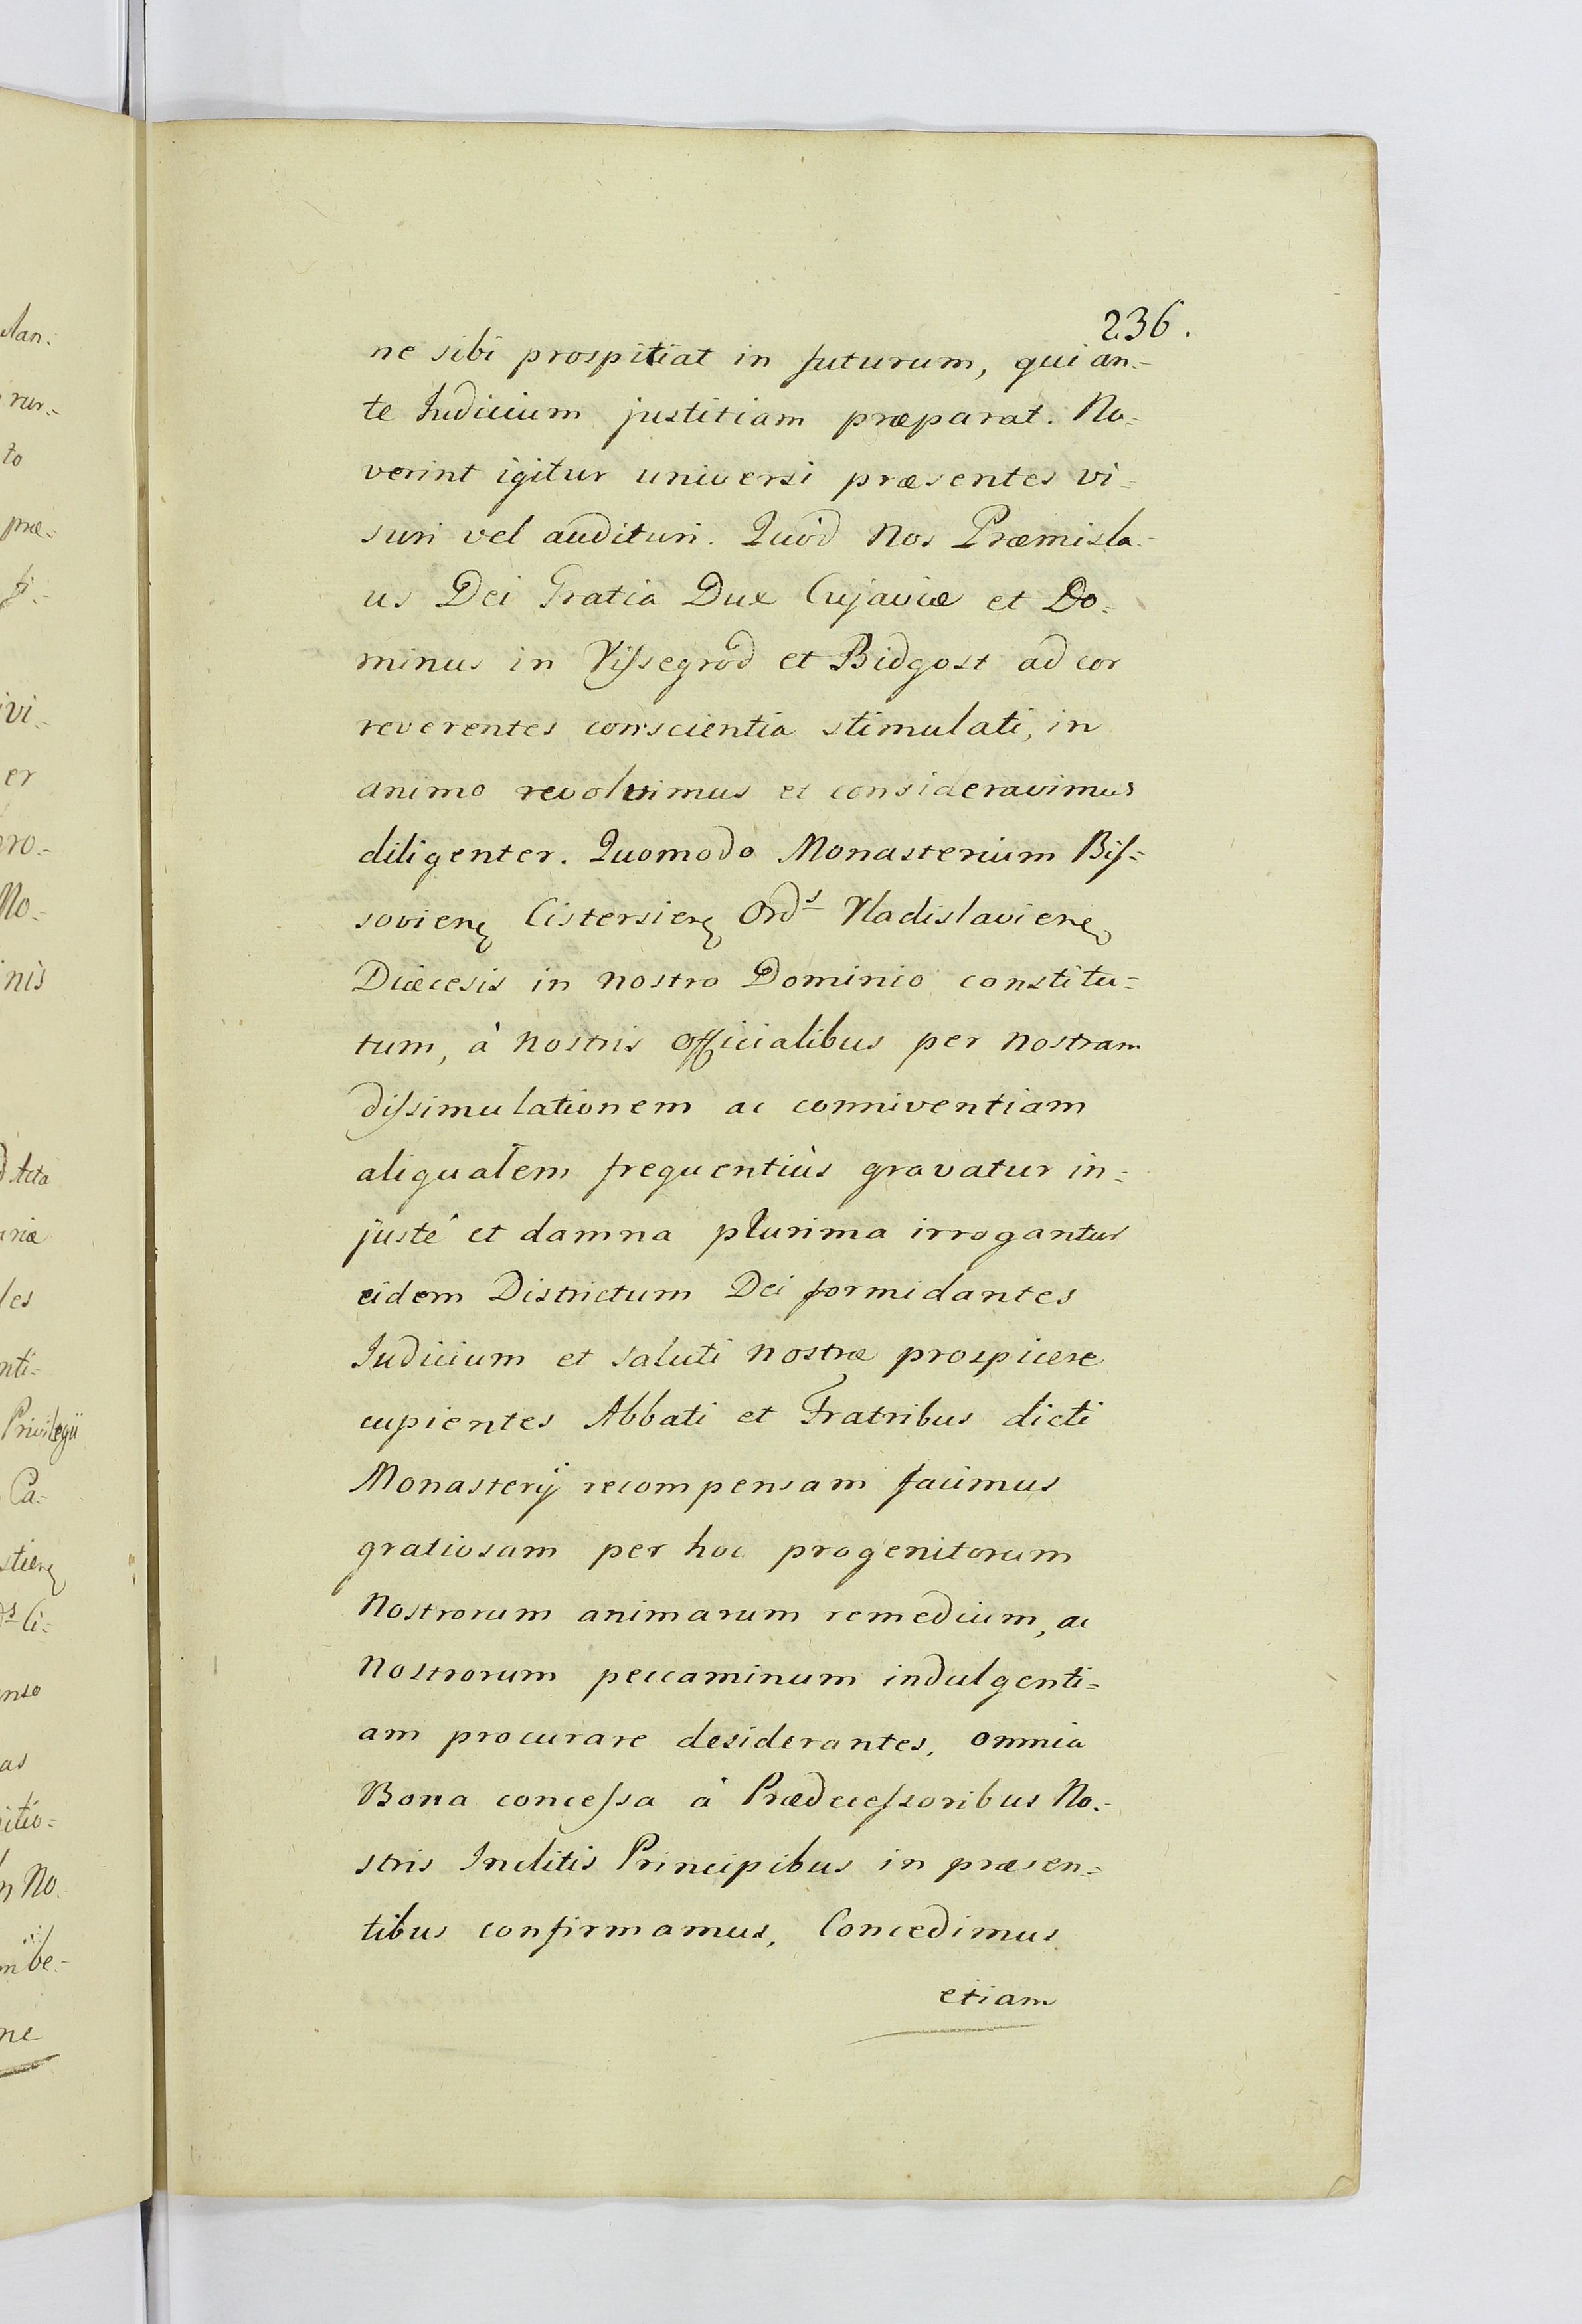 236.
ne sibi prospitiat in futurum, qui an=
te Iudicium justitiam præparat. No=
verint igitur universi præsentes vi=
suri vel audituri. Quòd Nos Præmisla=
us Dei Gratia Dux Cujaviæ et Do=
minus in Viſsegrod et Bidgost ad cor
reverentes conscientia stimulati, in
animo revolvimus et consideravimus
diligenter. Quomodo Monasterium Biſ=
sovien Cistersien Ords Vladislavien
Diæcesis in nostro Dominio constitu=
tum, à nostris Officialibus per nostram
diſsimulationem ac conniventiam
aliqualem frequentiùs gravatur in=
justè et damna plurima irrogantur
eidem Districtum Dei formidantes
Iudicium et saluti nostræ prospicere
cupientes Abbati et Fratribus dicti
Monasterij recompensam facimus
gratiosam per hoc progenitorum
Nostrorum animarum remedium, ac
Nostrorum peccaminum indulgenti=
am procurare desiderantes, omnia
Bona conceſsa à Prædeceſsoribus No=
stris Inclitis Principibus in præsen=
tibus confirmamus, Concedimus
etiam